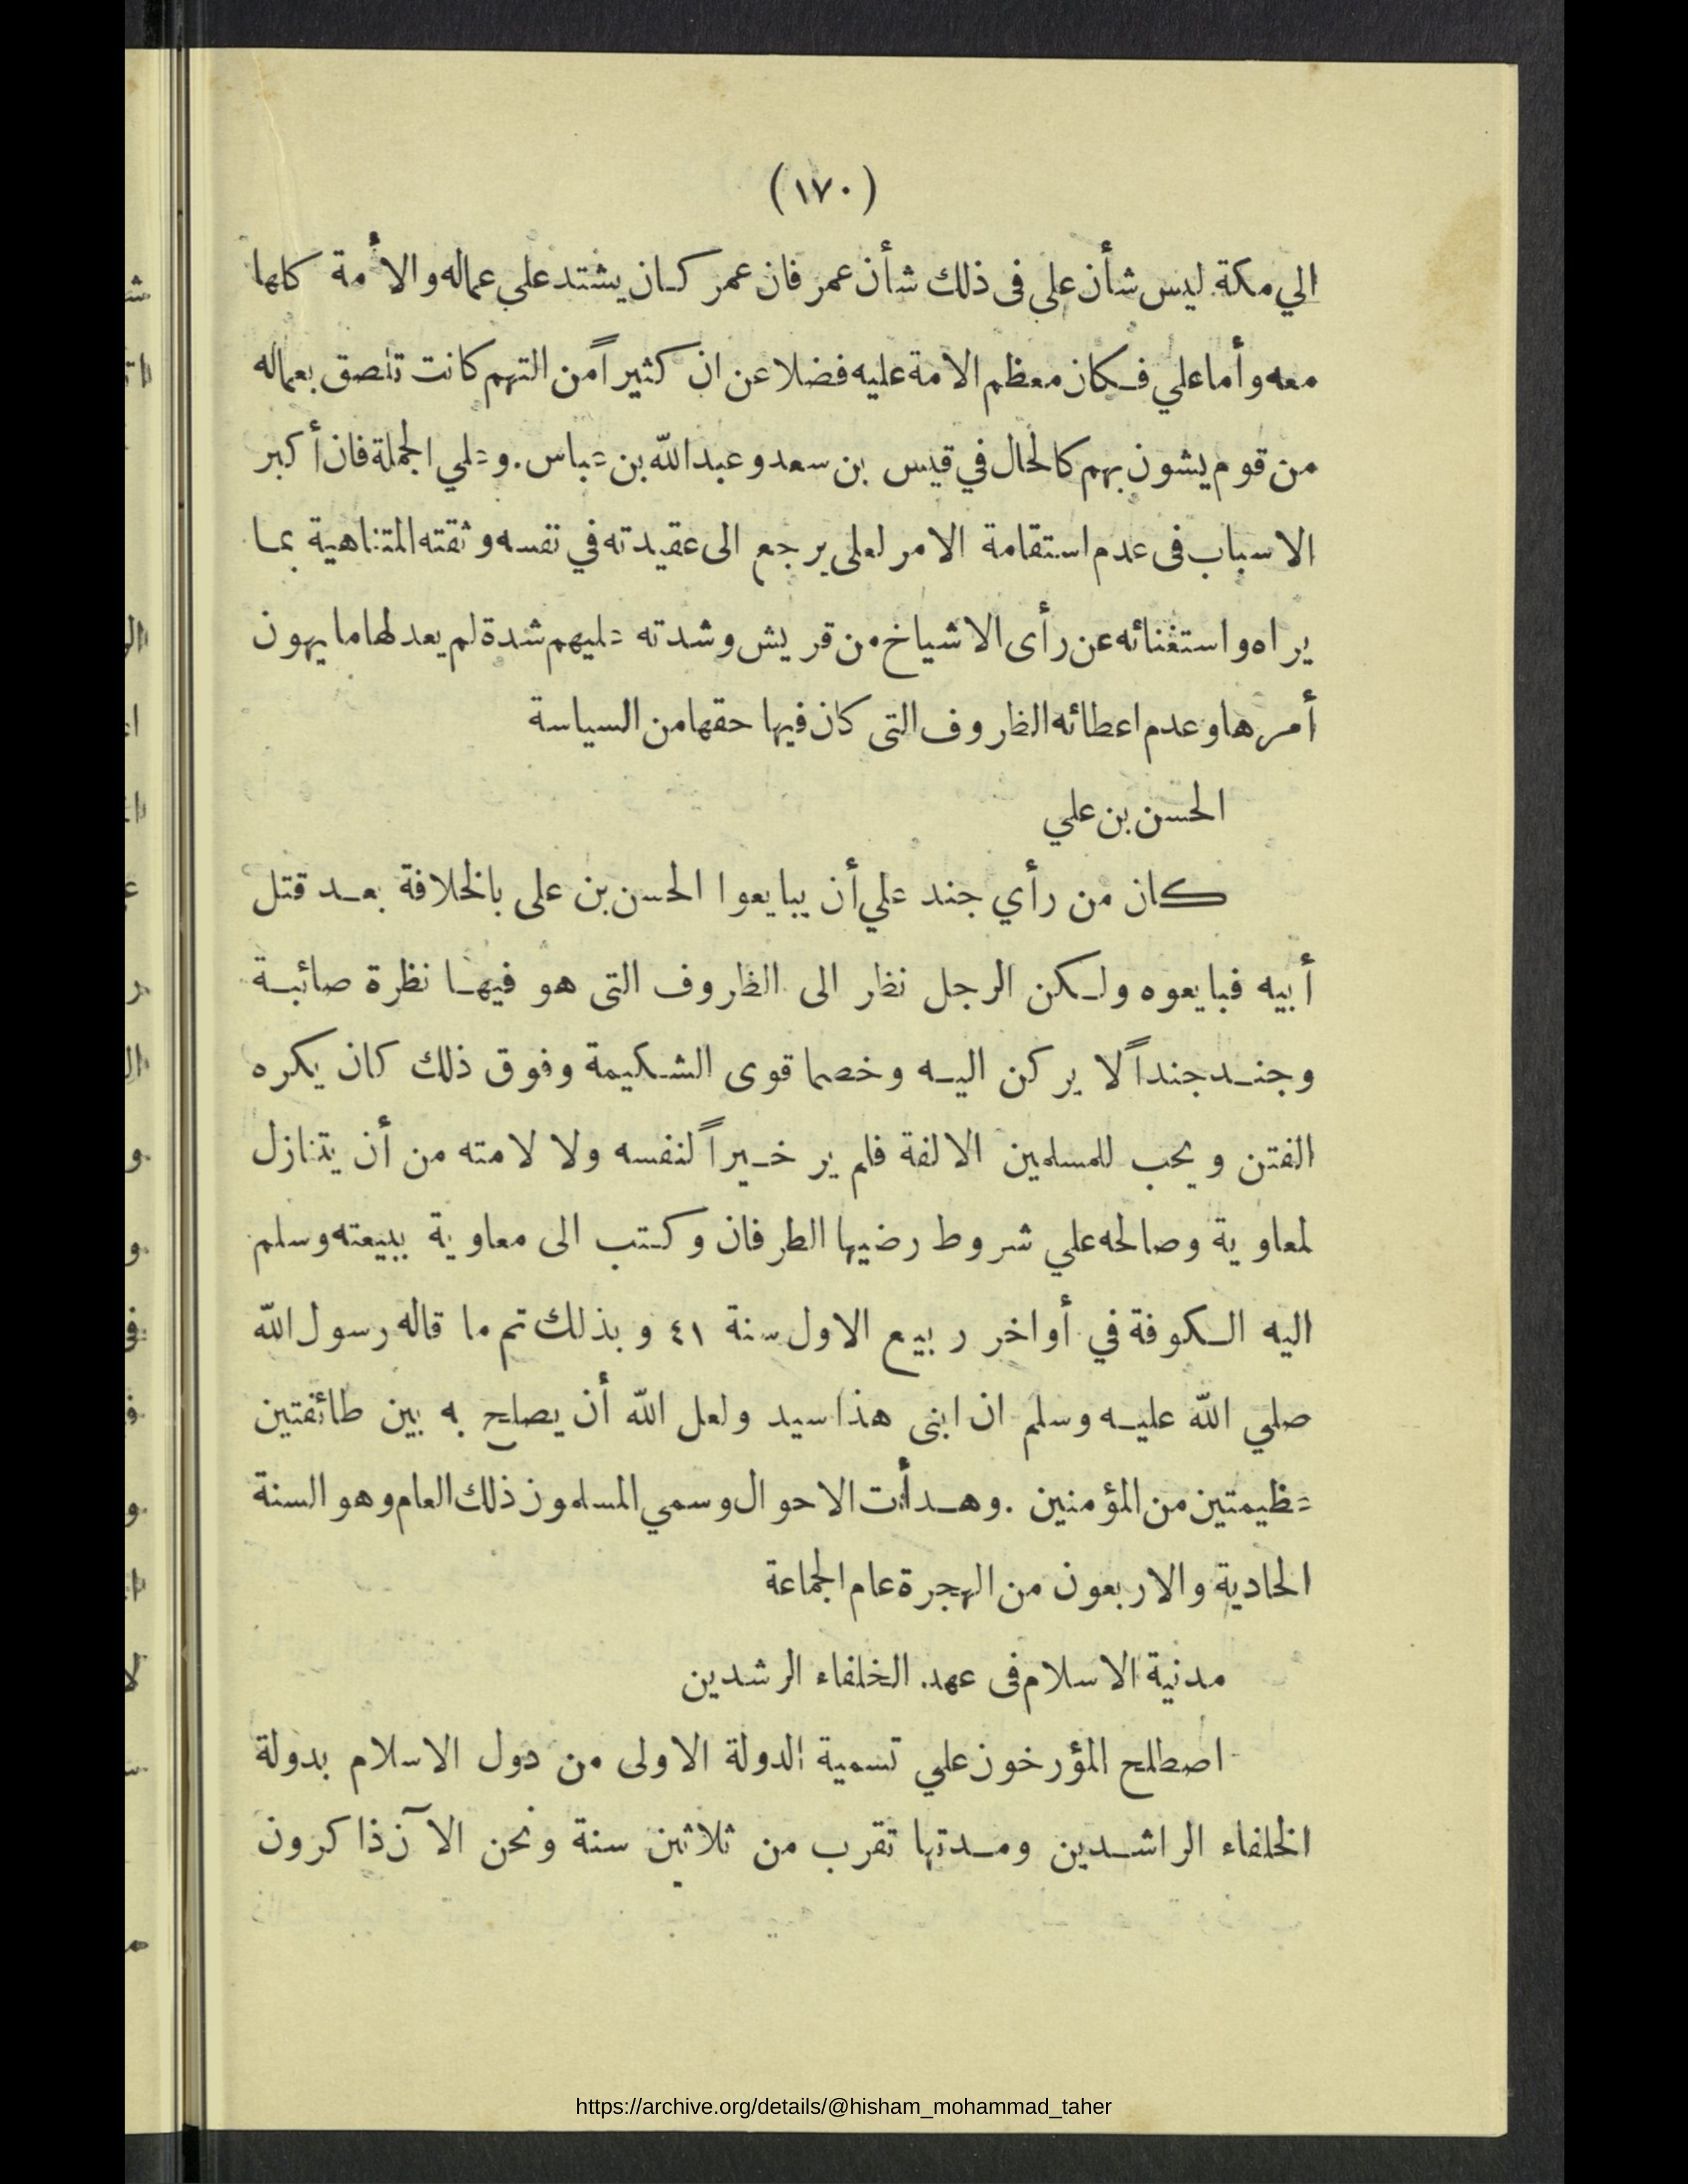 (١٧٠)
الي مكة ليس شأن علي فى ذلك شأن عمر فان عمر كان يشتد علي عماله والأمة كلها
معه وأما علي فكان معظم الامة عليه فضلا عن ان كثيراً من التهم كانت تلصق بعماله
من قوم يشون بهم كالحال في قيس بن سعد وعبد الله بن عباس . وعلي الجملة فان أكبر
الاسباب فى عدم استقامة الامر لعلى يرجع الى عقيدته في نفسه وثقته المتناهية بما
يراه واستغنائه عن رأى الاشياخ من قريش وشدته عليهم شدة لم يعد لها ما يهون
أمرها وعدم اعطائه الظروف التى كان فيها حقها من السياسة
الحسن بن علي
كان من رأي جند علي أن يبايعوا الحسن بن على بالخلافة بعد قتل
أبيه فبايعوه ولكن الرجل نظر الى الظروف التى هو فيها نظرة صائبة
وجند جنداً لا يركن اليه وخصما قوى الشكيمة وفوق ذلك كان يكره
الفتن ويحب للمسلمين الالفة فلم ير خيراً لنفسه ولا لامته من أن يتنازل
لمعاوية وصالحه علي شروط رضيها الطرفان وكتب الى معاوية ببيعته وسلم
اليه الكوفة في أواخر ربيع الاول سنة ٤١ وبذلك تم ما قاله رسول الله
صلي الله عليه وسلم ان ابنى هذا سيد ولعل الله أن يصلح به بين طائفتين
عظيمتين من المؤمنين . وهدأت الاحوال وسمي المسلمون ذلك العام وهو السنة
الحادية والاربعون من الهجرة عام الجماعة
مدنية الاسلام فى عهد. الخلفاء الرشدين
اصطلح المؤرخون علي تسمية الدولة الاولى من دول الاسلام بدولة
الخلفاء الراشدين ومدتها تقرب من ثلاثين سنة ونحن الآن ذاكرون
https://archive.org/details/@hisham_mohammad_taher